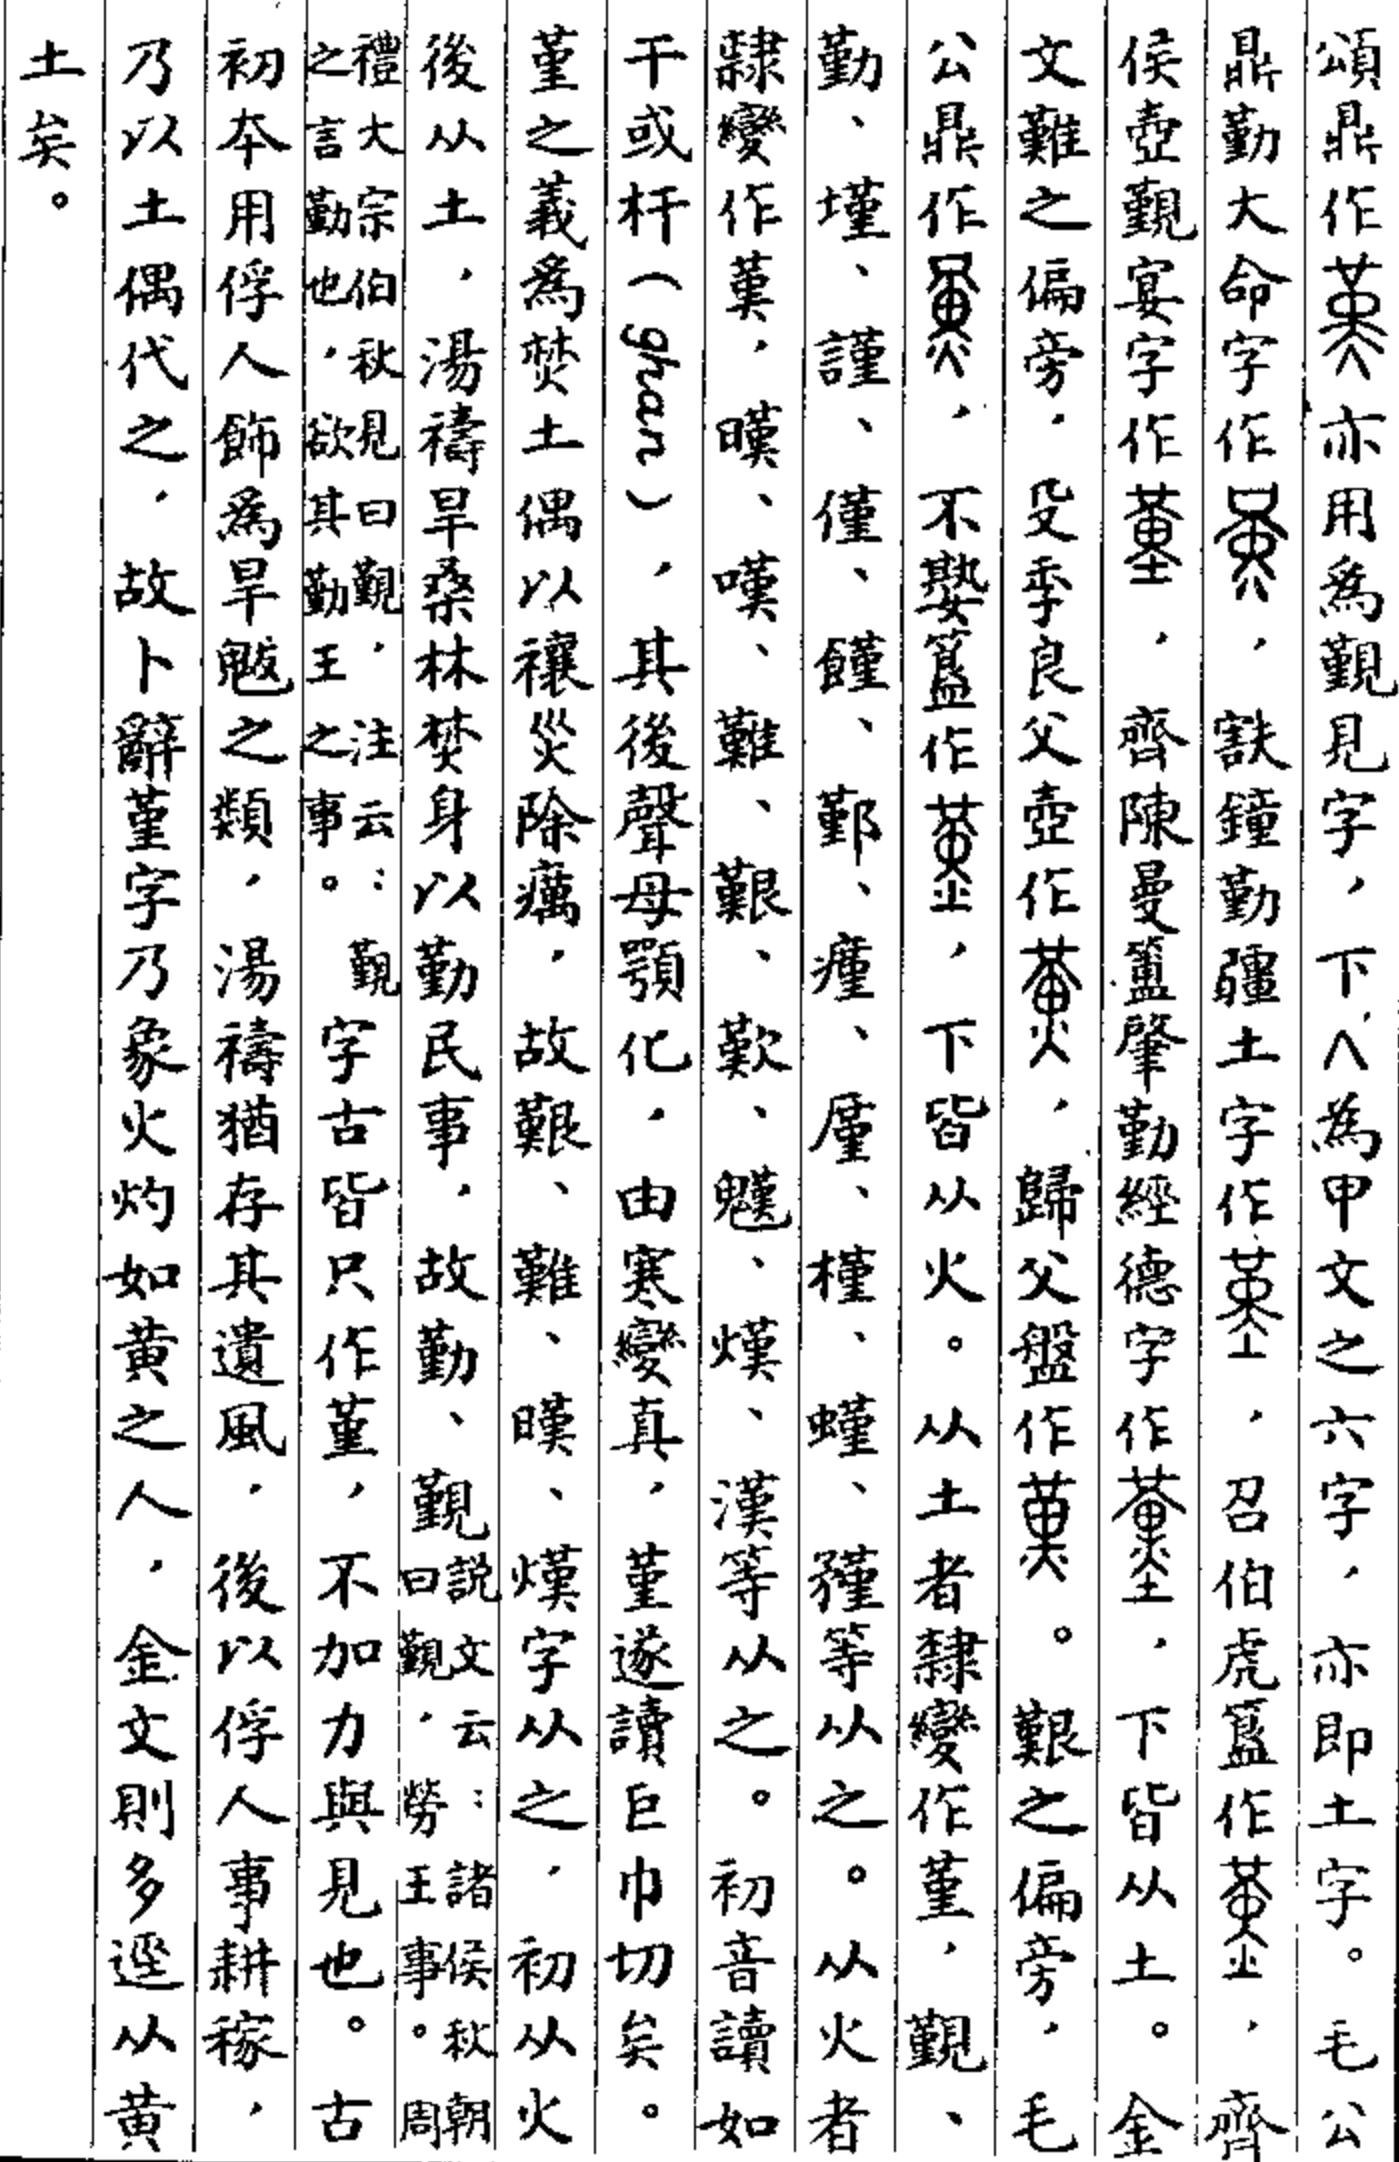 頌鼎作亦用為覲見字，下八為甲文之六字，亦即土字。毛公
鼎勤大命字作，㝬鐘勤疆土字作，召伯虎簋作，齊
侯壺覲宴字作，齊陳曼簠肇勤經德字作，下皆从土。金
文難之偏旁，殳季良父壺作，歸父盤作。艱之偏旁，毛
公鼎作，不𡢁簋作，下皆从火。从土者隸變作堇，覲、
勤、墐、謹、僅、饉、鄞、瘽、廑、槿、螼、㢙等从之。从火者
隸變作𦰩，暵、嘆、難、艱、歎、魌、熯、漢等从之。初音讀如
干或杆（ghan），其後聲母顎化，由寒變真，堇遂讀巨巾切矣。
堇之義為焚土偶以禳災除癘，故艱、難、暵、熯字从之，初从火
後从土，湯禱旱桑林焚身以勤民事，故勤、覲説文云：諸侯秋朝曰覲，勞王事。周
禮大宗伯秋見曰覲，注云：覲之言勤也，欲其勤王之事。字古皆只作堇，不加力與見也。古
初本用俘人飾為旱魃之類，湯禱猶存其遺風，後以俘人事耕稼，
乃以土偶代之，故卜辭堇字乃象火灼如黄之人，金文則多逕从黄
土矣。